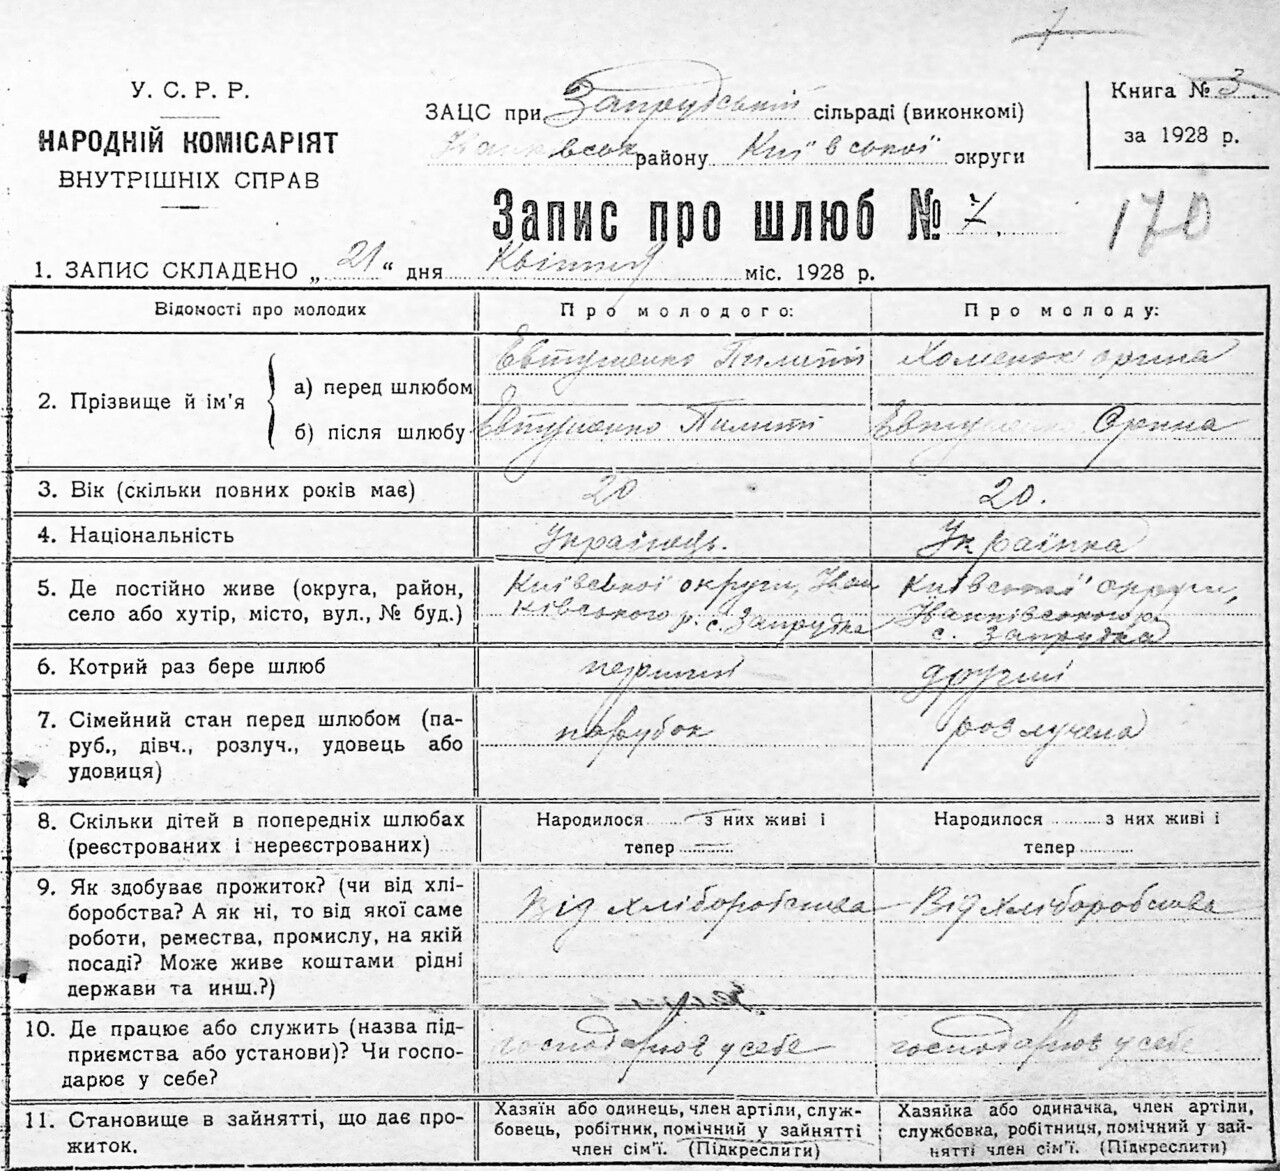 7
У. С. Р. Р.
НАРОДНІЙ КОМІСАРІЯТ
ВНУТРІШНІХ СПРАВ
ЗАЦС при Запрудській сільраді (виконкомі)
району Київської округи
Книга № 3
за 1928 р.
Запис про шлюб № 7.
170
1. ЗАПИС СКЛАДЕНО „ 21 “ дня Квітня міс. 1928 р.
Відомості про молодих Про молодого: Про молоду:
2. Прізвище й ім'я
а) перед шлюбом Евтушенко Пилип Хоменок Орина
б) після шлюбу Евтушенко Пилип Евтушенко Орина
3. Вік (скільки повних років має) 20 20.
4. Національність Українець. Українка
5. Де постійно живе (округа, район, село або хутір, місто, вул., № буд.)
Київської округи, Іван
ківського р. с. Запрудка
Київської округи,
Іванківського р.
с. Запрудка
6. Котрий раз бере шлюб перший другий
7. Сімейний стан перед шлюбом (па-
руб., дівч., розлуч., удовець або
удовиця)
парубок розлучена
8. Скільки дітей в попередніх шлюбах
(реєстрованих і нереєстрованих)
Народилося ........ з них живі і
тепер .........
Народилося ........ з них живі і
тепер .........
9. Як здобуває прожиток? (чи від хлі-
боробства? А як ні, то від якої саме
роботи, ремества, промислу, на якій
посаді? Може живе коштами рідні
держави та инш.?)
Від хліборобства Від хліборобства
10. Де працює або служить (назва під-
приємства або установи)? Чи госпо-
дарює у себе?
господарює у себе господарює у себе
11. Становище в зайнятті, що дає про-
житок.
Хазяїн або одинець, член артіли, служ-
бовець, робітник, помічний у зайнятті
член сім'ї. (Підкреслити)
Хазяйка або одиначка, член артіли,
службовка, робітниця, помічний у зай-
нятті член сім'ї. (Підкреслити)